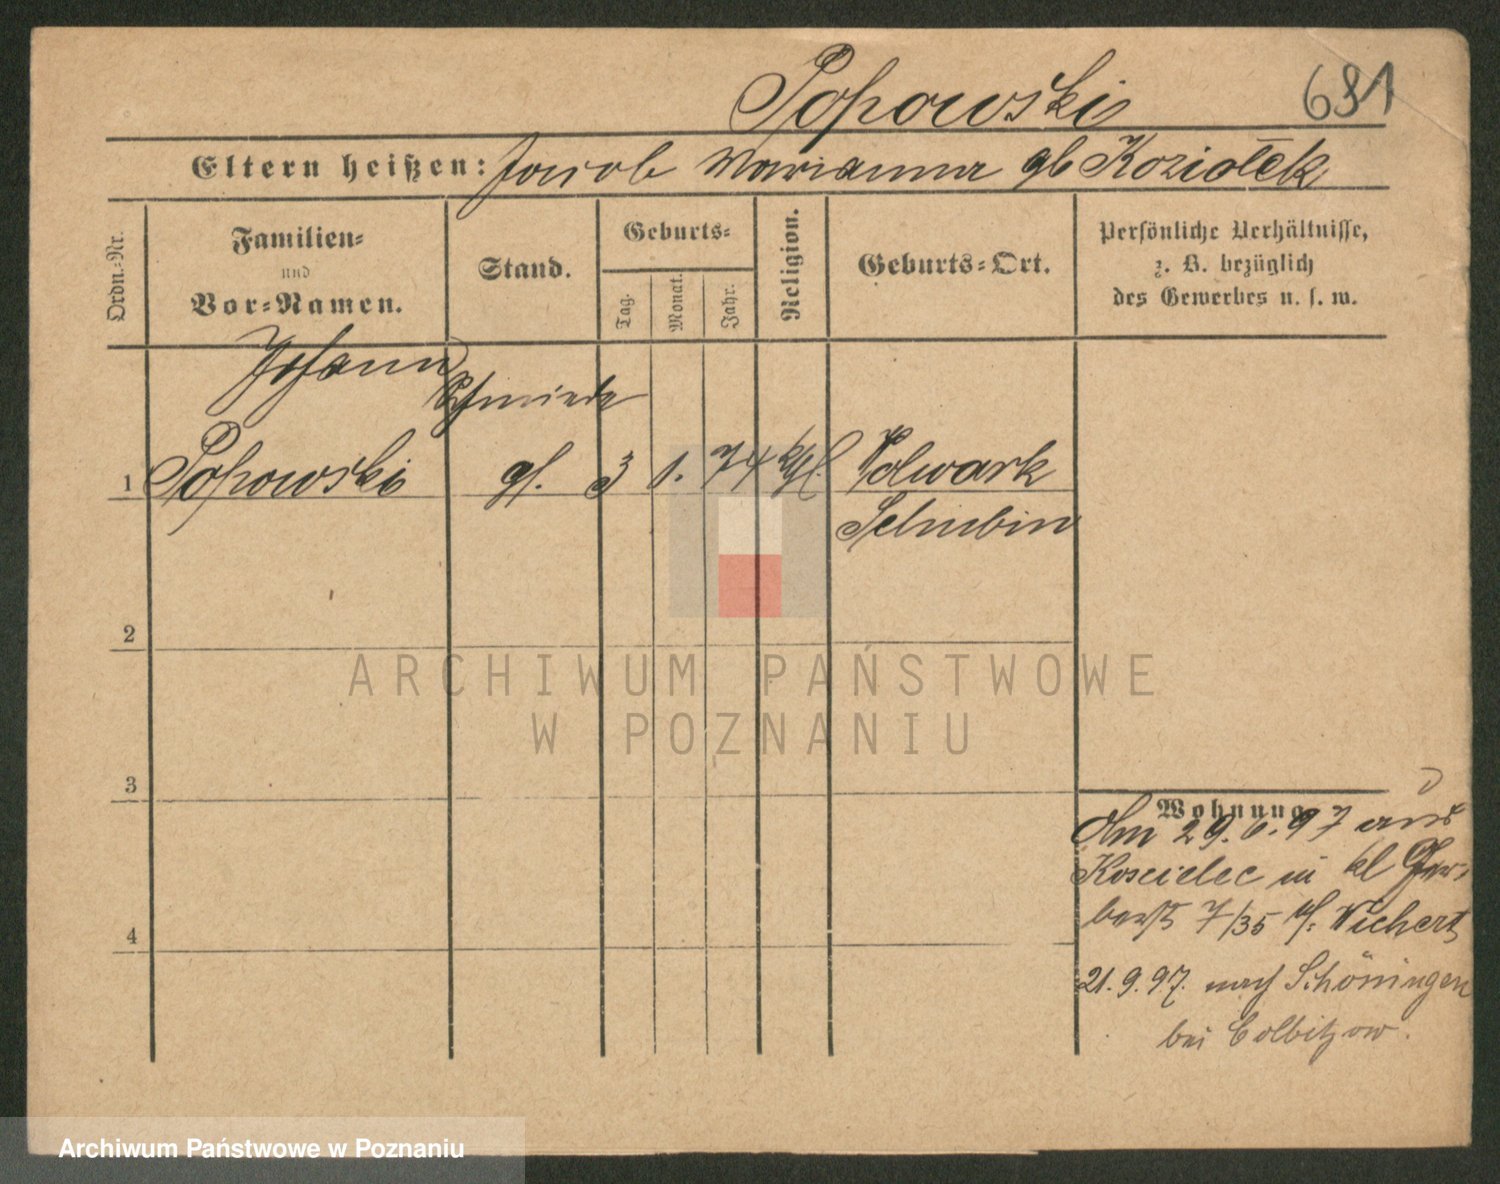 Popowski 681
Eltern heißen: Jacob Marianna gb Koziołek
Ordn.-Nr.
Familien-
und
Vor-Namen.
Stand.
Geburts-
Tag.
Monat.
Jahr.
Religion.
Geburts-Ort.
Persönliche Verhältnisse,
z. B. bezüglich
des Gewerbes u. s. w.
Johann
Schmiede
1 Popowski gs. 3 1. 74 kthl. Folwark
Schubin
2
3
4
Wohnung
Am 29. 6. 97 aus
Koscielec in kl Ger-
berst 7/35 b/: Wichert
21. 9. 97. nach Schöningen
bei Colbitzow.
ARCHIWUM PAŃSTWOWE
W POZNANIU
Archiwum Państwowe w Poznaniu